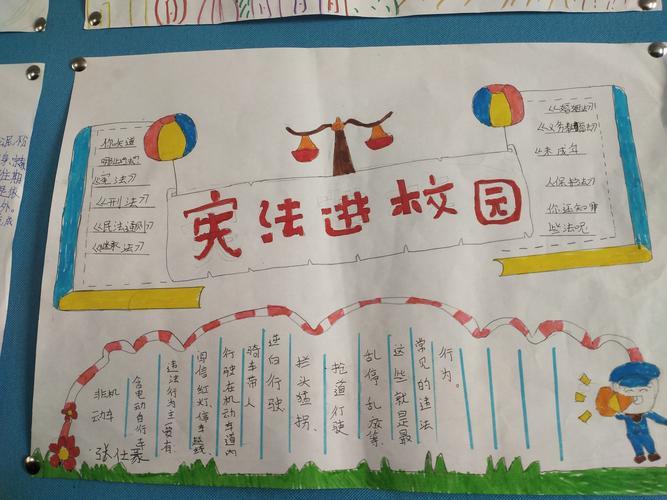 宪法进校园
你知道
哪些法?
《宪法》
《刑法》
《民法通则》
《继承法》
《婚姻法》
《义务教育法》
《未成年
《保护法》
你还知哪
些法呢
非机动车
含电动自行车
违法行为主要有
闯信红灯、停车越线
行驶在机动车道内
骑车带人
逆向行驶
拦头猛拐、
抢道行驶
乱停乱放等
这些就是最
常见的违法
行为。
张仕豪